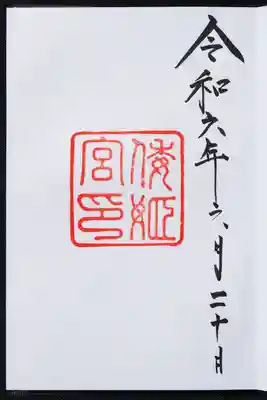 令和六年六月二十日
倭姫宮印